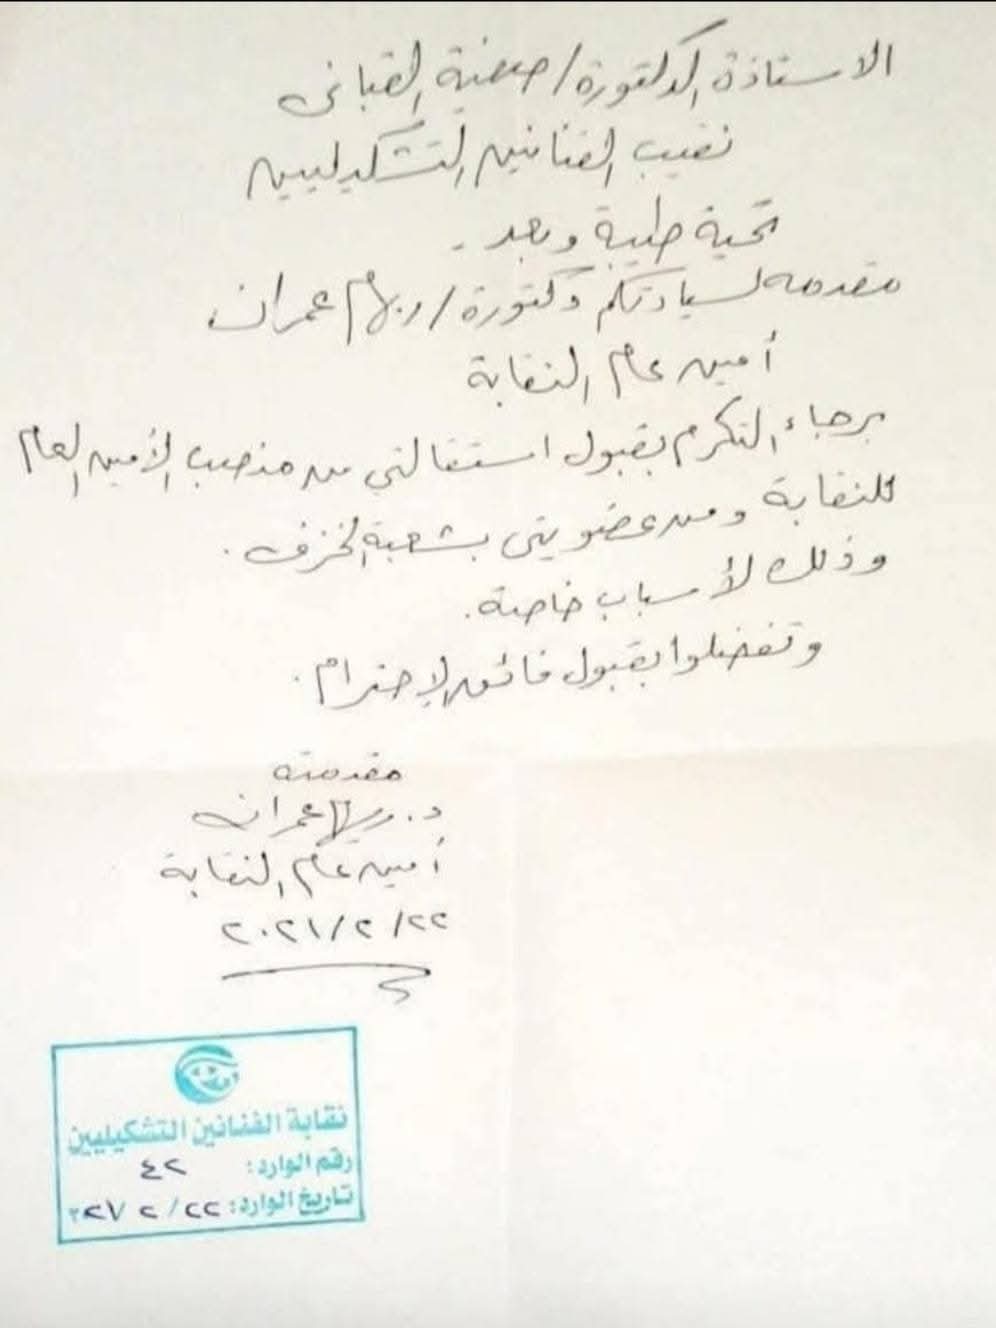 الاستاذة الدكتورة / صفية القبانى
نقيب الفنانين التشكيليين
تحية طيبة وبعد -
مقدمه لسيادتكم دكتورة / ريهام عمران
أمين عام النقابة
برجاء التكرم بقبول استقالتي من منصب الأمين العام
للنقابة ومن عضويتى بشعبة الخزف .
وذلك لأسباب خاصة .
وتفضلوا بقبول فائق الإحترام .
مقدمته
د. ريهام عمران
أمين عام النقابة
٢٠٢١/٢/٢٢
نقابة الفنانين التشكيليين
رقم الوارد: ٤٢
تاريخ الوارد: ٢٢ / ٢